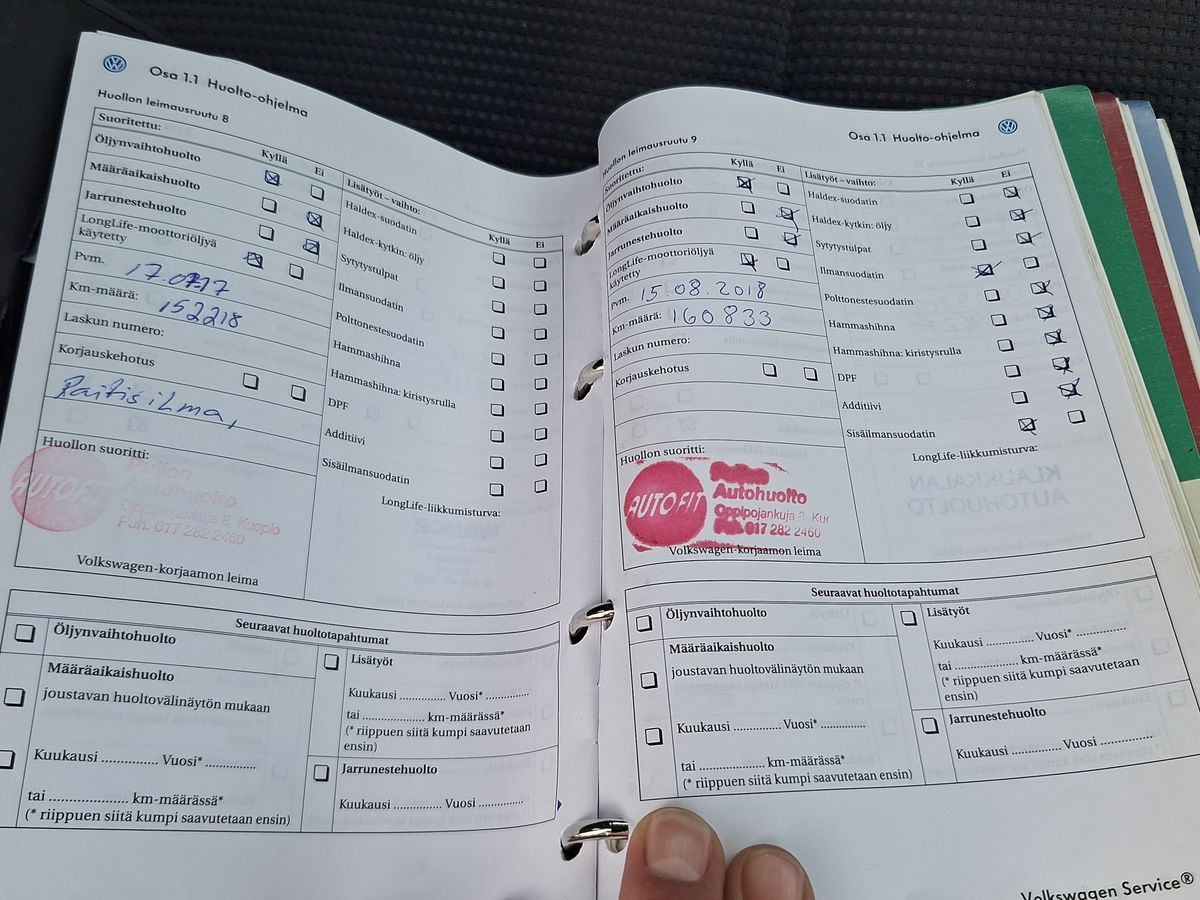 Osa 1.1 Huolto-ohjelma
Huollon leimausruutu 8
Suoritettu:
Kyllä Ei
Öljynvaihtohuolto
Määräaikaishuolto
Jarrunestehuolto
LongLife-moottoriöljyä
käytetty
Pvm. 17.0717
Km-määrä: 152218
Laskun numero:
Korjauskehotus
Raitis ilma,
Huollon suoritti:
AUTOFIT
Autohuolto
Oppipojankuja 8, Kuopio
Puh. 017 282 2460
Volkswagen-korjaamon leima
Lisätyöt – vaihto:
Kyllä Ei
Haldex-suodatin
Haldex-kytkin: öljy
Sytytystulpat
Ilmansuodatin
Polttonestesuodatin
Hammashihna
Hammashihna: kiristysrulla
DPF
Additiivi
Sisäilmansuodatin
LongLife-liikkumisturva:
Seuraavat huoltotapahtumat
Öljynvaihtohuolto
Määräaikaishuolto
joustavan huoltovälinäytön mukaan
Kuukausi .............. Vuosi* ..............
tai ..................... km-määrässä*
(* riippuen siitä kumpi saavutetaan ensin)
Lisätyöt
Kuukausi ............. Vuosi* .............
tai ..................... km-määrässä*
(* riippuen siitä kumpi saavutetaan
ensin)
Jarrunestehuolto
Kuukausi ............. Vuosi .............
Osa 1.1 Huolto-ohjelma
Huollon leimausruutu 9
Suoritettu:
Kyllä Ei
Öljynvaihtohuolto
Määräaikaishuolto
Jarrunestehuolto
LongLife-moottoriöljyä
käytetty
Pvm. 15.08.2018
Km-määrä: 160833
Laskun numero:
Korjauskehotus
Huollon suoritti:
AUTOFIT
Autohuolto
Oppipojankuja Kuo
017 282 2460
Volkswagen-korjaamon leima
Lisätyöt – vaihto:
Kyllä Ei
Haldex-suodatin
Haldex-kytkin: öljy
Sytytystulpat
Ilmansuodatin
Polttonestesuodatin
Hammashihna
Hammashihna: kiristysrulla
DPF
Additiivi
Sisäilmansuodatin
LongLife-liikkumisturva:
KLAUKKALAN
AUTOHUOLTO
Seuraavat huoltotapahtumat
Öljynvaihtohuolto
Määräaikaishuolto
joustavan huoltovälinäytön mukaan
Kuukausi .............. Vuosi* .............
tai ..................... km-määrässä*
(* riippuen siitä kumpi saavutetaan ensin)
Lisätyöt
Kuukausi ............. Vuosi* ..............
tai ..................... km-määrässä*
(* riippuen siitä kumpi saavutetaan
ensin)
Jarrunestehuolto
Kuukausi ............. Vuosi ..............
Volkswagen Service®